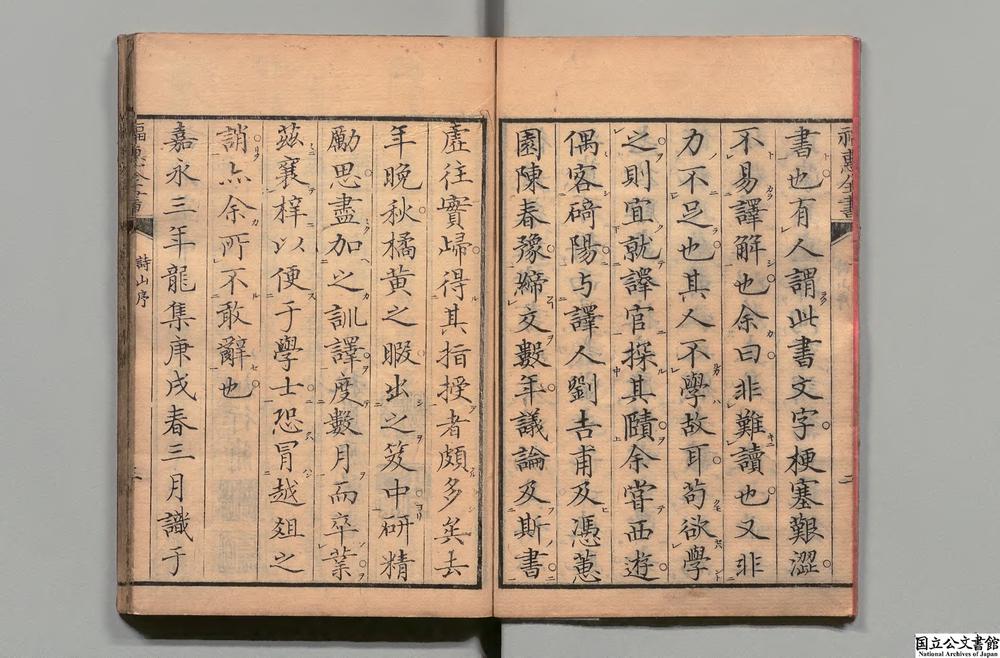 書也有人謂此書文字梗塞艱澀
不易譯解也余曰非難讀也又非
力不足也其人不學故耳苟欲學
之則宜就譯官探其賾余嘗西遊
偶客碕陽与譯人劉吉甫及馮蕙
園陳春豫締交數年議論及斯書
虛往實歸得其指授者頗多矣去
年晚秋橘黃之暇出之笈中研精
勵思盡加之訓譯度數月而卒業
茲襄梓以便于學士恐冒越爼之
誚亦余所不敢辭也
嘉永三年龍集庚戌春三月識于
詩山序
国立公文書館
National Archives of Japan